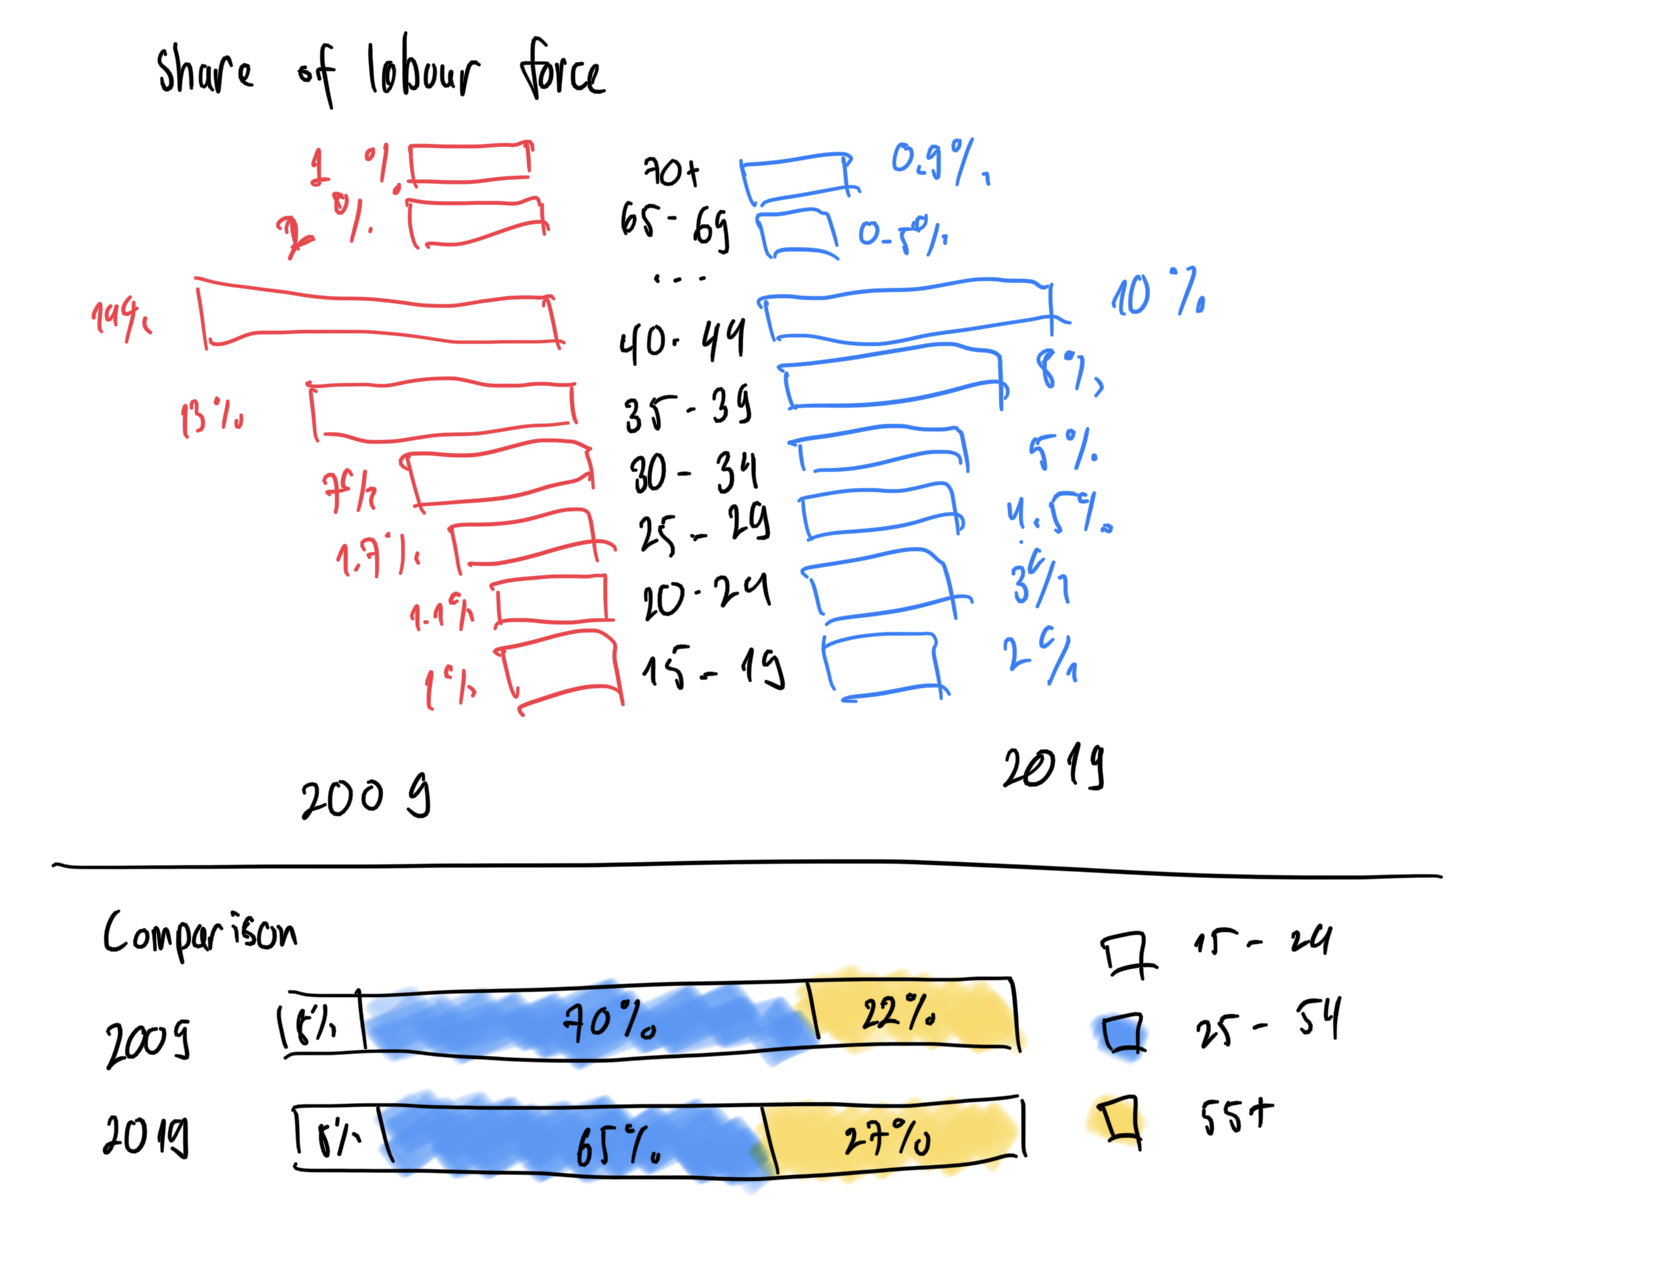 Share of labour force
1 % 70+ 0.9%
2 % 65-69 0-5%
...
19% 40-44 10 %
13% 35-39 8%
7% 30-34 5%
1.7% 25-29 4.5%
1.1% 20-24 3%
1% 15-19 2%
2009 2019
Comparison
15-24
2009 8% 70% 22%
25-54
2019 8% 65% 27%
55+